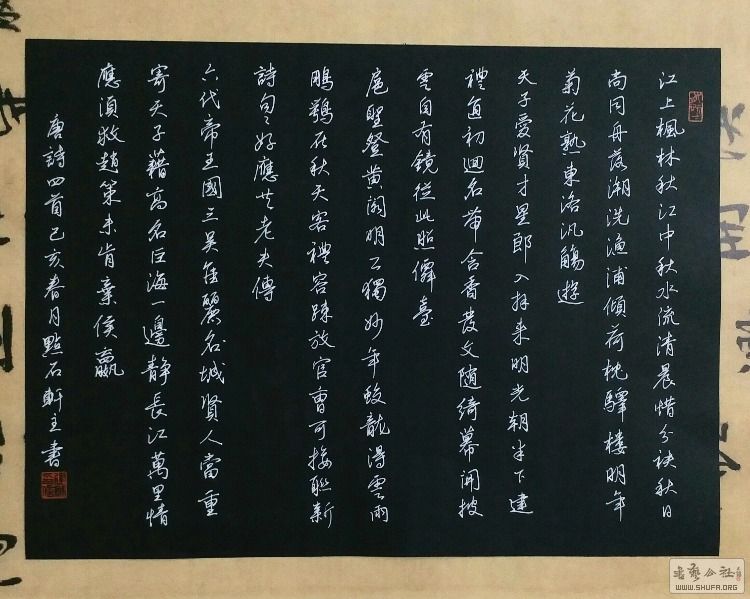 江上楓林秋江中秋水流清晨惜分袂秋日
尚同舟落潮洗漁浦傾荷枕驛樓明年
菊花熟東洛汎觴遊
天子愛賢才星郎入拜来明光朝半下建
禮直初迴名帶含香發文随綺幕開披
雲自有鏡從此照僚臺
扈聖登黄阁明公獨妙年蛟龍得雲雨
鵰鶚在秋天客禮容疎放官曹可接聯新
詩句々好應共老夫傳
六代帝王國三吴佳麗名城賢人當重
寄天子藉高名巨海一邊静長江萬里情
應須救趙策未肯棄侯嬴
唐詩四首己亥春月點石軒主書
WWW.SHUFA.ORG